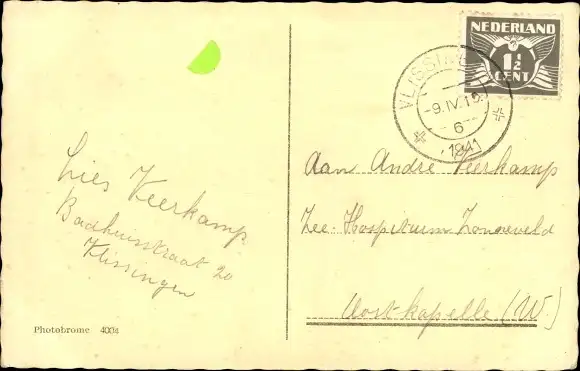 NEDERLAND
1½
CENT
VLISSINGEN
-9.IV.15
6
1941
Lies Veerkamp
Badhuisstraat 20
Vlissingen
Aan André Veerkamp
Zee-Hospitium Zonneveld
Oostkapelle (W.)
Photobrome 4004